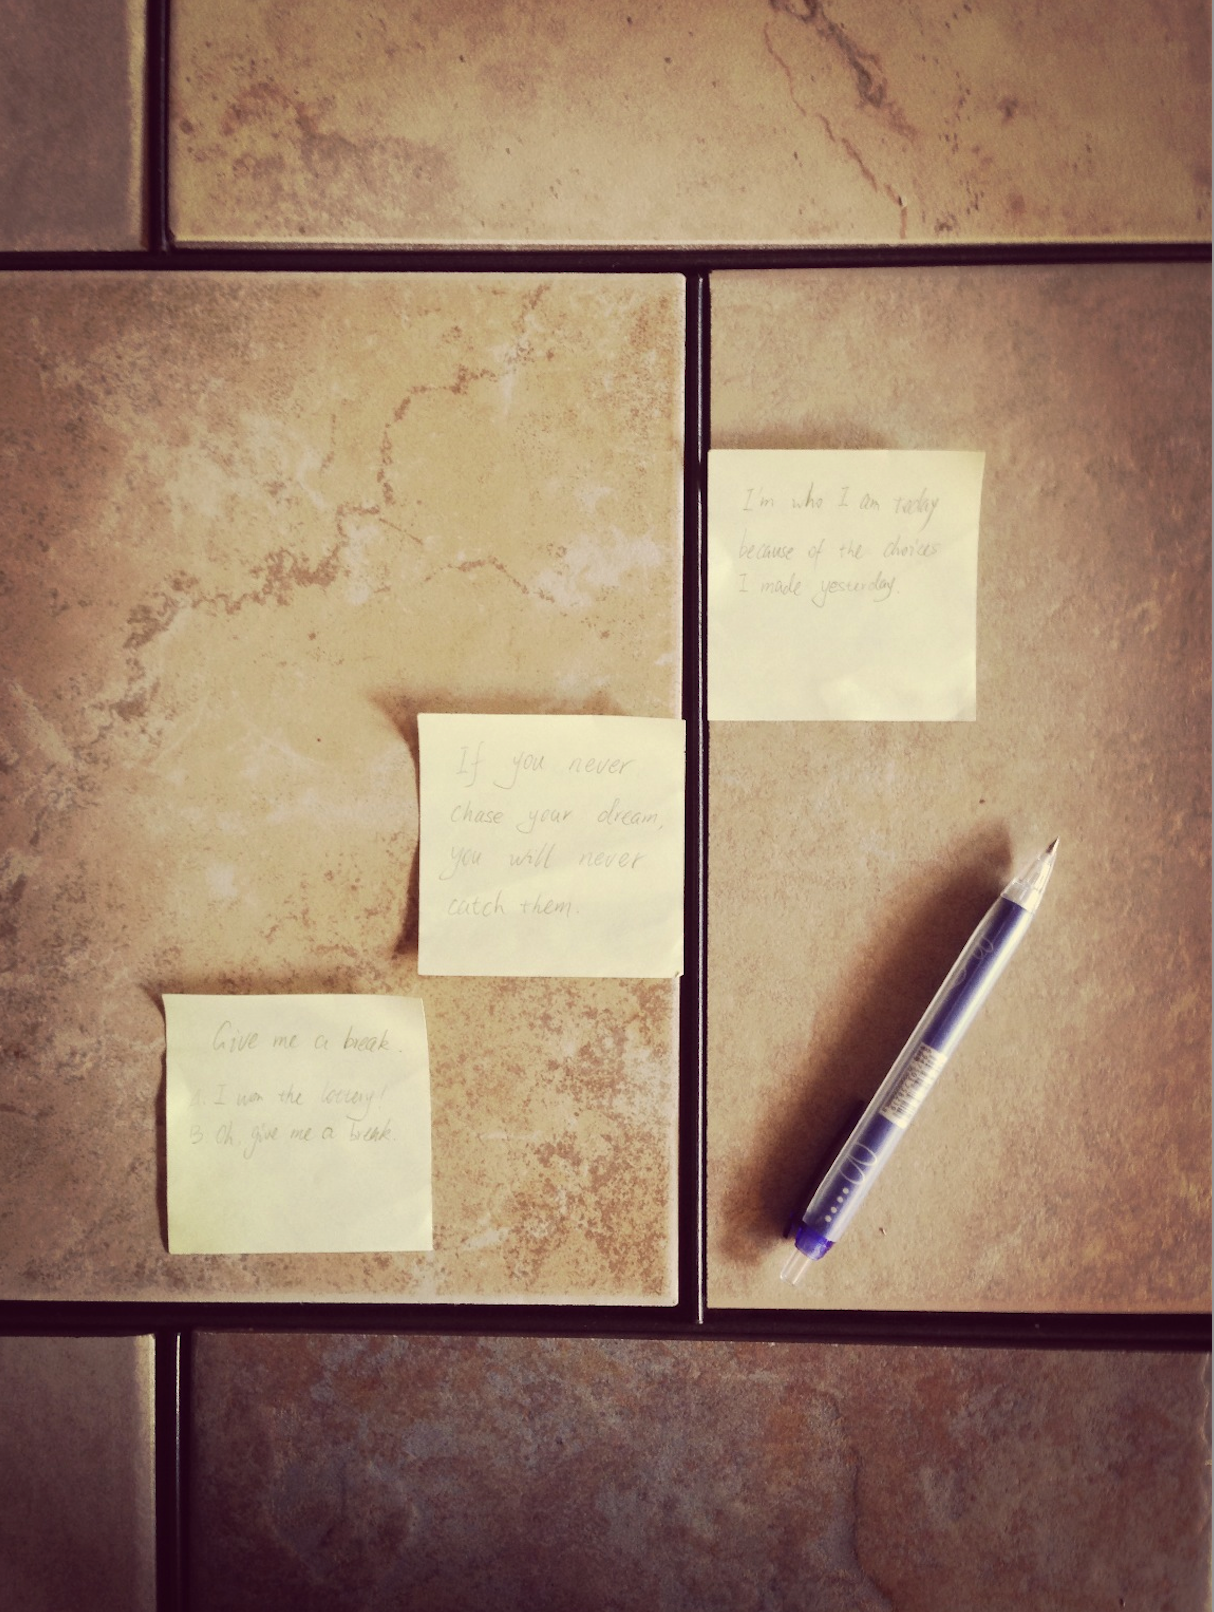 I'm who I am today
because of the choices
I made yesterday.
If you never
chase your dream,
you will never
catch them.
Give me a break.
A. I won the lottery!
B Oh, give me a break.